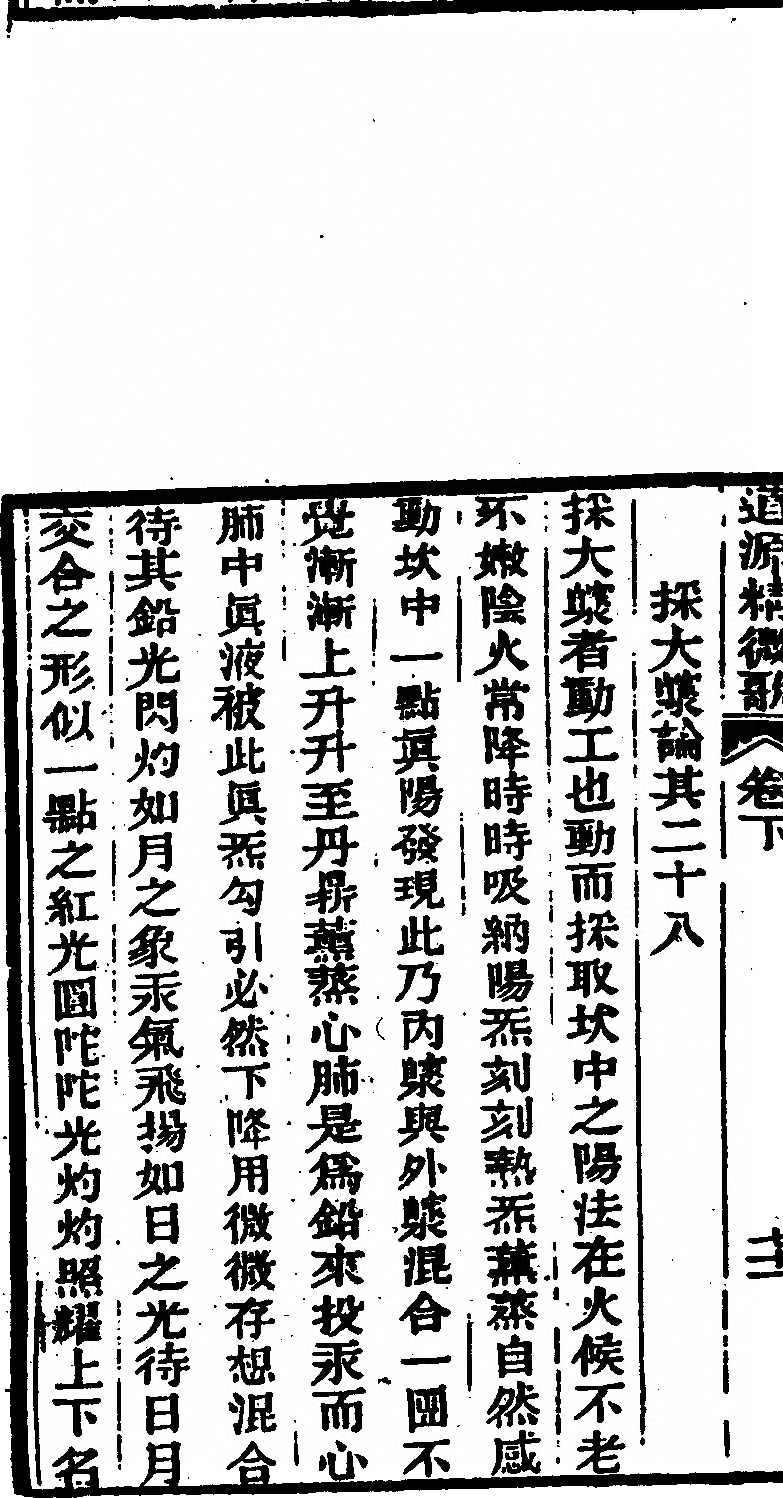 道源精微歌 卷下 十二
採大藥論其二十八
採大藥者動工也動而採取坎中之陽法在火候不老
不嫩陰火常降時時吸納陽炁刻刻熱炁薰蒸自然感
動坎中一點眞陽發現此乃內藥與外藥混合一團不
覺漸漸上升升至丹鼎薰蒸心肺是爲鉛來投汞而心
肺中眞液被此眞炁勾引必然下降用微微存想混合
待其鉛光閃灼如月之象汞氣飛揚如日之光待日月
交合之形似一點之紅光圓陀陀光灼灼照耀上下名